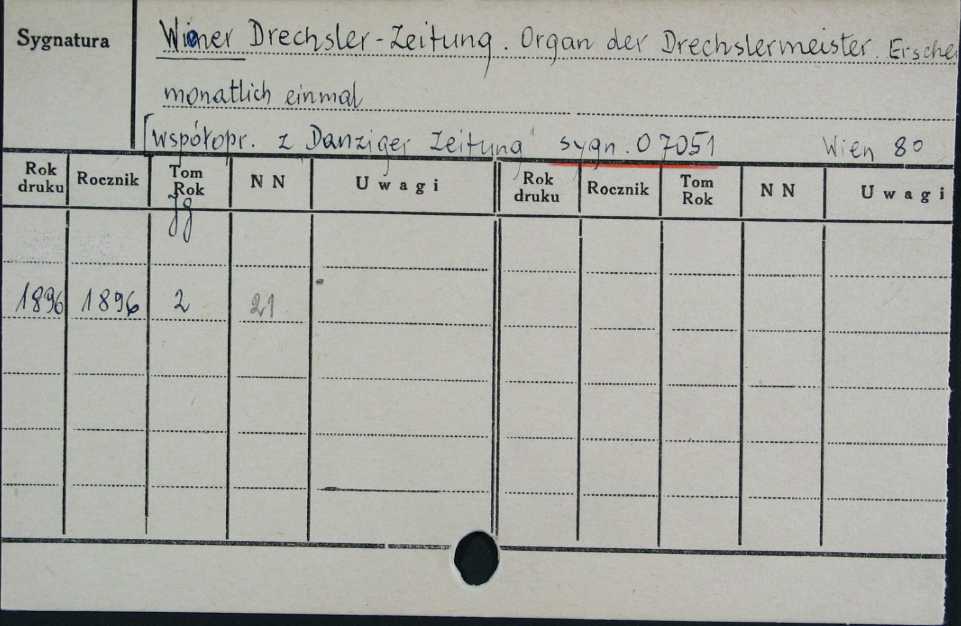 Sygnatura
Wiener Drechsler-Zeitung. Organ der Drechslermeister. Ersche
monatlich einmal
[współopr. z Danziger Zeitung" sygn. O 7051 Wien 8°
Rok druku Rocznik Tom Rok N N Uwagi Rok druku Rocznik Tom Rok N N Uwagi
Jg
1896 1896 2 21